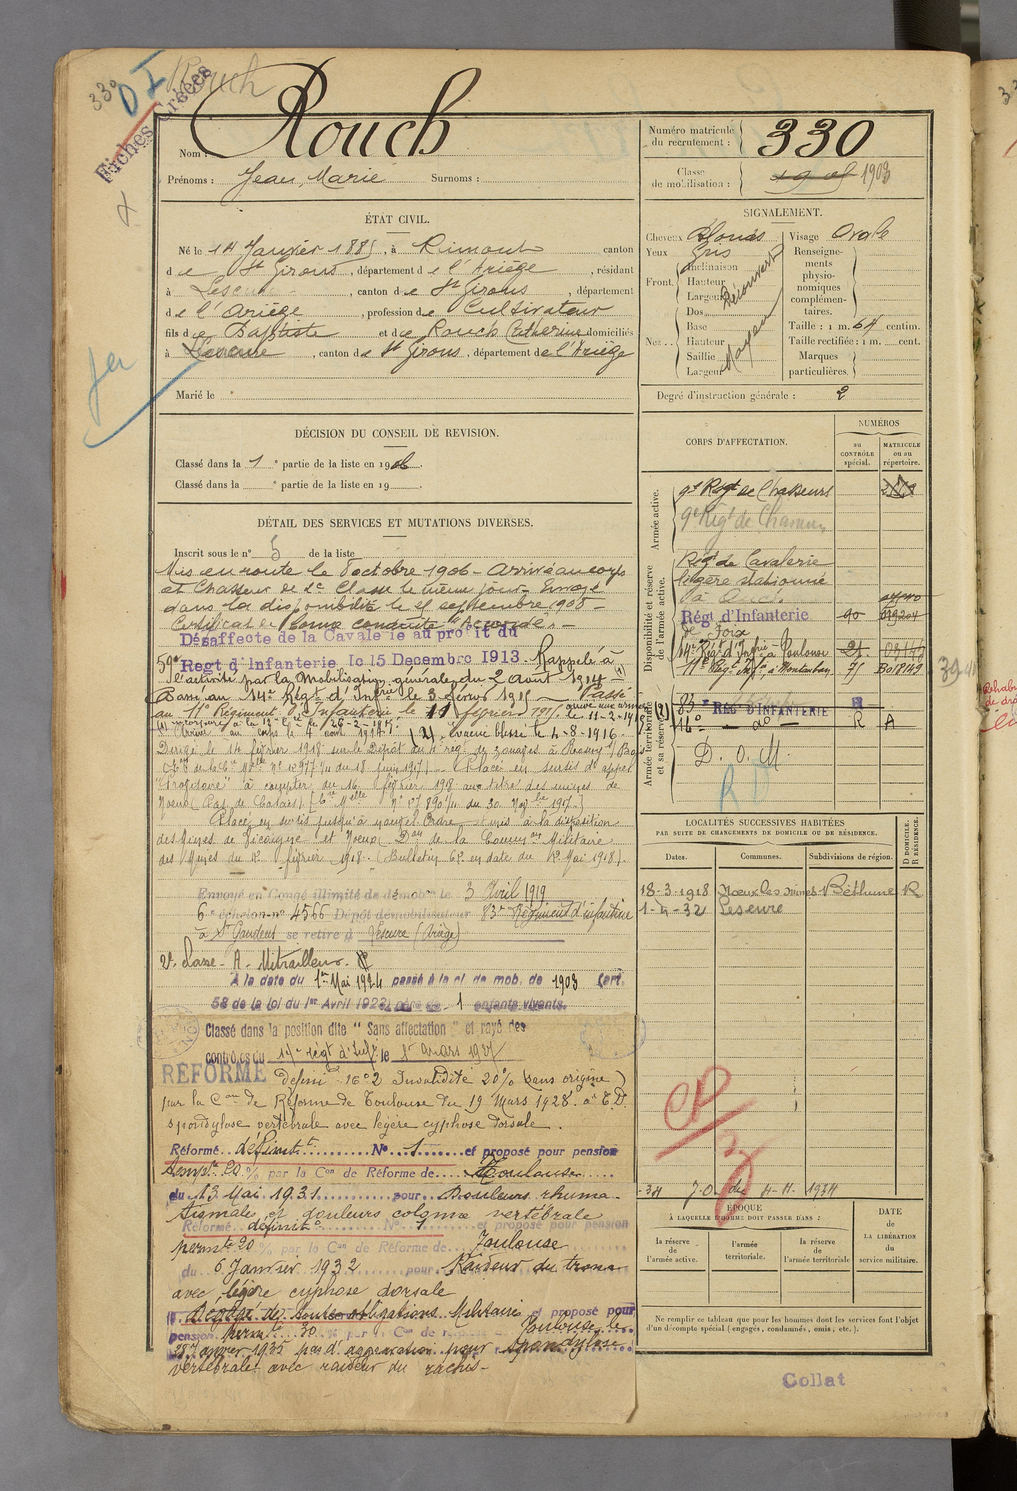 330
D I
Rouch
Fiches Créées
Nom : Rouch
Prénoms : Jean, Marie Surnoms :
ÉTAT CIVIL.
Né le 14 Janvier 1885, à Rimont canton
de St Girons, département de l'Ariège, résidant
à Lescure, canton de St Girons, département
de l'Ariège, profession de Cultivateur
fils de Baptiste et de Rouch Catherine domiciliés
à Lescure, canton de St Girons, département de l'Ariège
Marié le
DÉCISION DU CONSEIL DE REVISION.
Classé dans la 1e partie de la liste en 1906.
Classé dans la e partie de la liste en 19
DÉTAIL DES SERVICES ET MUTATIONS DIVERSES.
Inscrit sous le n° 5 de la liste
Mis en route le 8 octobre 1906 - Arrivé au corps
et Chasseur de 2e Classe le même jour - Envoyé
dans la disponibilité le septembre 1908 -
Certificat de bonne conduite "Accordé" -
Désaffecté de la Cavalerie au profit du
59e Regt d'Infanterie le 15 Decembre 1913. Rappelé à
l'activité par la Mobilisation générale du 2 août 1914 (1)
Passé au 14e Régt d'Infrie le 3 février 1915 - Passé
au 11e Régiment d'Infanterie le 11 février 1915
(1) Arrivé au corps le 4 août 1914. (2) évacué blessé le 4-8-1916.
Dirigé le 14 février 1918 sur le Dépôt du 4e reg. de zouaves à Rosny s/Bois
Placé en sursis d'appel
à compter du 16 février 1918 au titre des mines de
Noeux (Pas de Calais) du 30 Nov bre 1917.
Placé en sursis jusqu'à nouvel Ordre - mis à la disposition
des Mines de et Noeux. de la Couronne Militaire
des Mines du février 1918. (Bulletin en date du Mai 1918).
Envoyé en Congé illimité de démob. le 3 Avril 1919
6e échelon n° 4566 Dépôt démobilisateur 83e Régiment d'infanterie
à St Gaudens se retire à Lescure (Ariège)
A. Mitrailleur.
A la date du 1er Mai 1924 passé à la cl. de mob. de 1903 (art.
58 de la loi du 1er Avril 1923) père de 1 enfants vivants.
Classé dans la position dite "Sans affectation" et rayé des
contrôles du régt d'Infie le 1er mars 1927
REFORMÉ Défini n°2 Invalidité 20% (sans origine)
par la Con de Réforme de Toulouse du 19 Mars 1928.
spondylose vertébrale avec légère cyphose dorsale.
Réformé définitt N° 1 et proposé pour pension
tempre 20 % par la Con de Réforme de Toulouse
du 13 Mai 1931 pour Douleurs rhuma-
tismales et douleurs colonne vertébrale
Réformé définitt N° 1 et proposé pour pension
permte 20 % par la Con de Réforme de Toulouse
du 6 Janvier 1932 pour Raideur du tronc
avec légère cyphose dorsale
Dégagé de toutes obligations Militaires et proposé pour
pension Permte 30 % par la Con de Toulouse le
janvier 1935 pour spondylose
vertébrale avec raideur du rachis -
Numéro matricule
du recrutement : 330
Classe
de mobilisation : 1905 1903
SIGNALEMENT.
Cheveux Blonds
Yeux Gris
Front. Inclinaison
Hauteur
Largeur
Découvert
Nez Dos
Base
Hauteur
Saillie
Largeur
Moyen
Visage Ovale
Renseigne-
ments
physio-
nomiques
complémen-
taires.
Taille : 1 m. 64 centim.
Taille rectifiée : 1 m. cent.
Marques
particulières.
Degré d'instruction générale : 2
CORPS D'AFFECTATION.
NUMÉROS
au
CONTRÔLE
spécial.
MATRICULE
ou au
répertoire.
Armée active.
9e Regt de Chasseurs
9e Régt de Chasseurs
Disponibilité et réserve
de l'armée active.
Régt de Cavalerie
légère stationné
à Auch
Régt d'Infanterie 90
de Foix
14e Régt d'Infie à Toulouse 21
11e Régt Infie, à Montauban 71 Bo18149
Armée territoriale
et sa réserve
83e RÉG. D'INFANTERIE R
14e - do - R A
D. O. M.
R D
LOCALITÉS SUCCESSIVES HABITÉES
PAR SUITE DE CHANGEMENTS DE DOMICILE OU DE RÉSIDENCE.
Dates. Communes. Subdivisions de région. D DOMICILE. R RÉSIDENCE.
18-3-1918 Noeux les mines Béthune R
1-4-32 Lescure
70 du 4-11-1934
ÉPOQUE
À LAQUELLE L'HOMME DOIT PASSER DANS :
la réserve
de
l'armée active.
l'armée
territoriale.
la réserve
de
l'armée territoriale
DATE
de
LA LIBÉRATION
du
service militaire.
Ne remplir ce tableau que pour les hommes dont les services font l'objet
d'un décompte spécial (engagés, condamnés, omis, etc.).
Collat